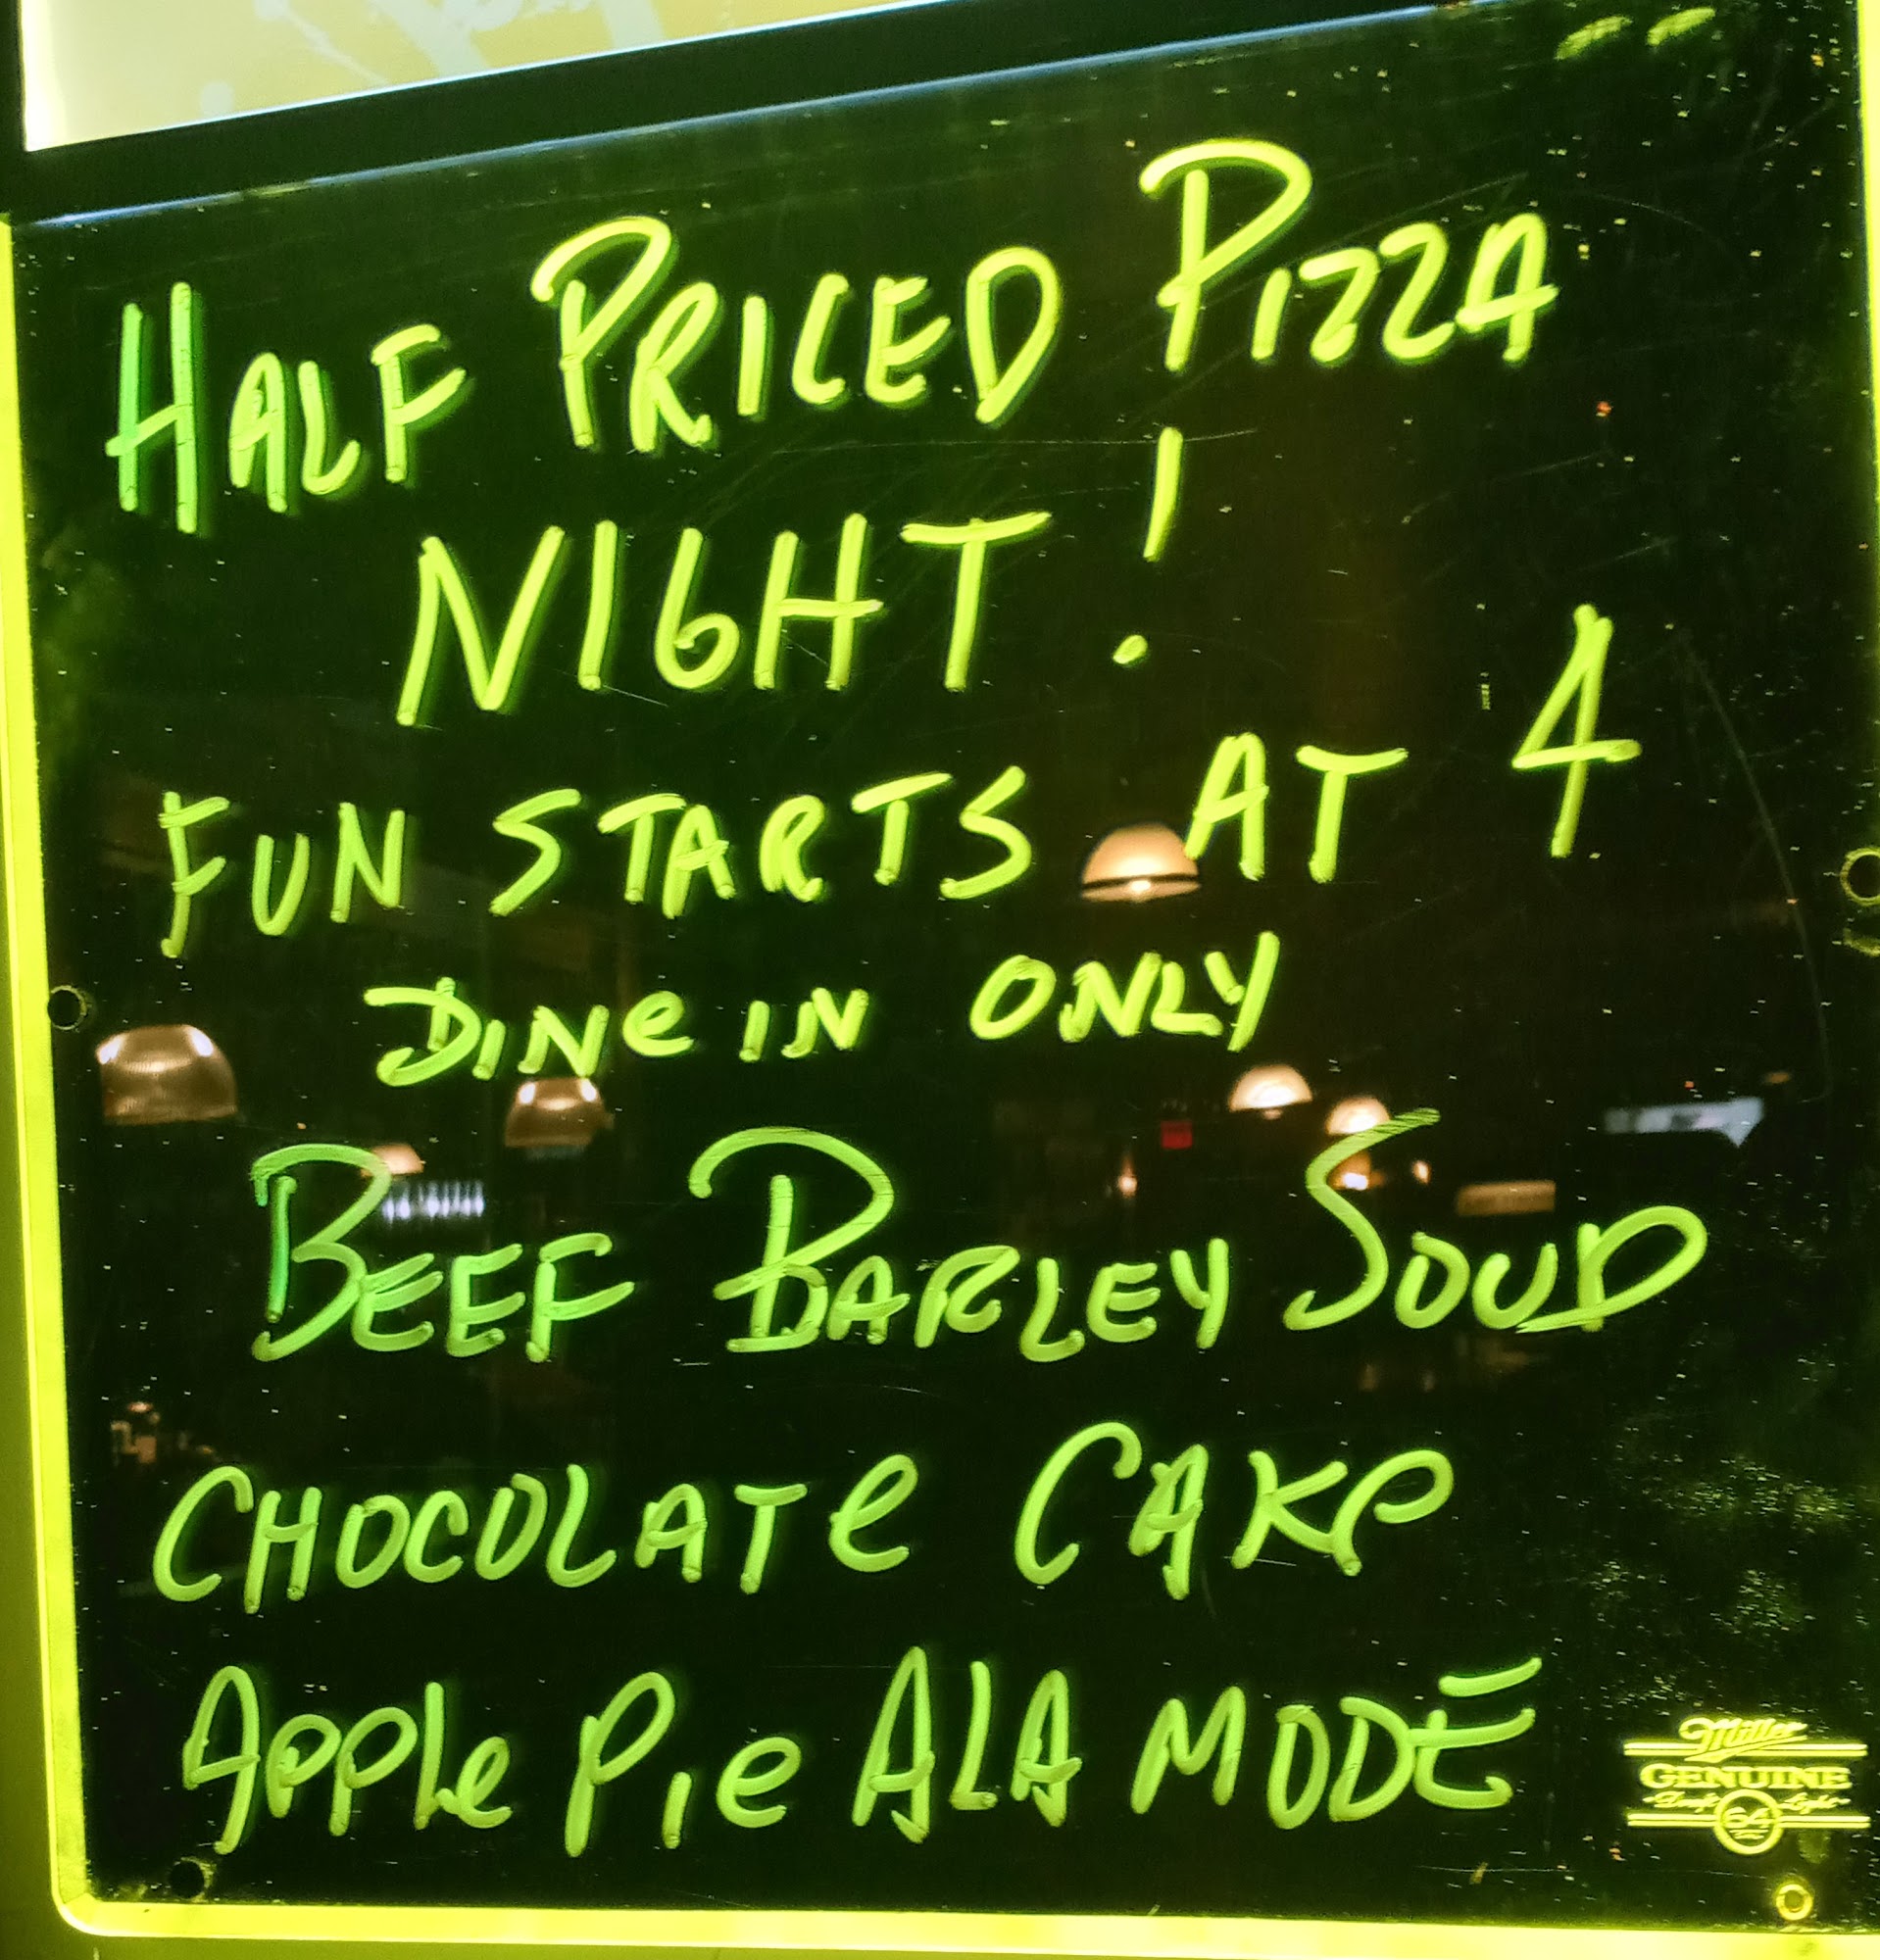 HALF PRICED PIZZA
NIGHT!
FUN STARTS AT 4
DINe IN ONLY
BEEF BARLEY SOUP
CHOCOLATe CAKe
Apple Pie ALA MODE
Miller
GENUINE
Draft Light
64